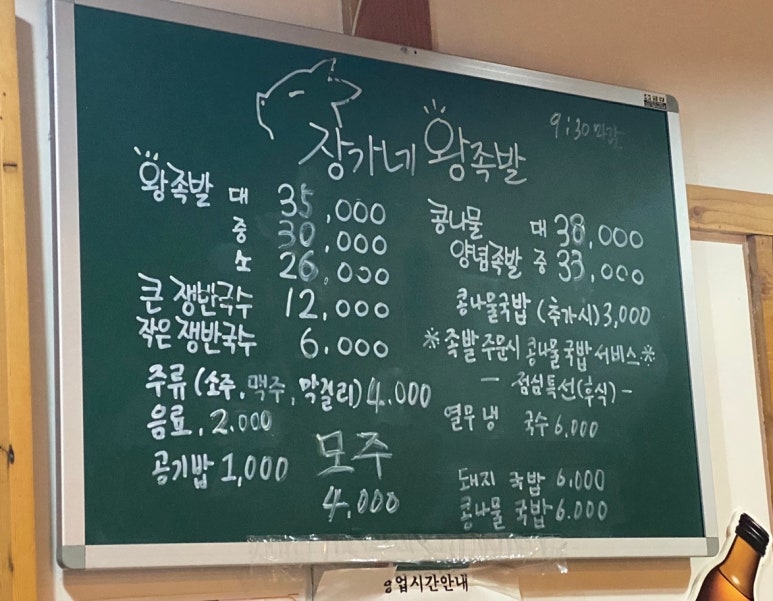 9:30 마감
장가네 왕족발
왕족발 대 35,000
중 30,000
소 26,000
큰 쟁반국수 12,000
작은 쟁반국수 6,000
주류 (소주, 맥주, 막걸리) 4,000
음료, 2.000
공기밥 1,000
모주
4,000
콩나물 대 38,000
양념족발 중 33,000
콩나물국밥 (추가시) 3,000
※족발 주문시 콩나물국밥 서비스※
- 점심특선(후식) -
열무 냉 국수 6,000
돼지 국밥 6,000
콩나물 국밥 6.000
영업시간안내